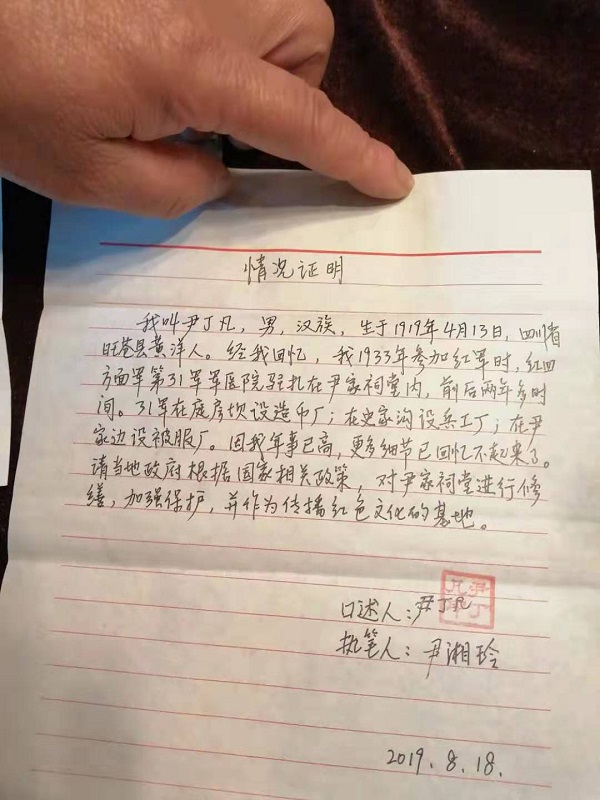 情况证明
我叫尹丁凡，男，汉族，生于1919年4月13日，四川省
旺苍县黄洋人。经我回忆，我1933年参加红军时，红四
方面军第31军军医院驻扎在尹家祠堂内，前后两年多时
间。31军在庭房坝设造币厂；在史家沟设兵工厂；在尹
家边设被服厂。因我年事已高，更多细节已回忆不起来了。
请当地政府根据国家相关政策，对尹家祠堂进行修
缮，加强保护，并作为传播红色文化的基地。
口述人：尹丁凡
执笔人：尹湘玲
2019.8.18.